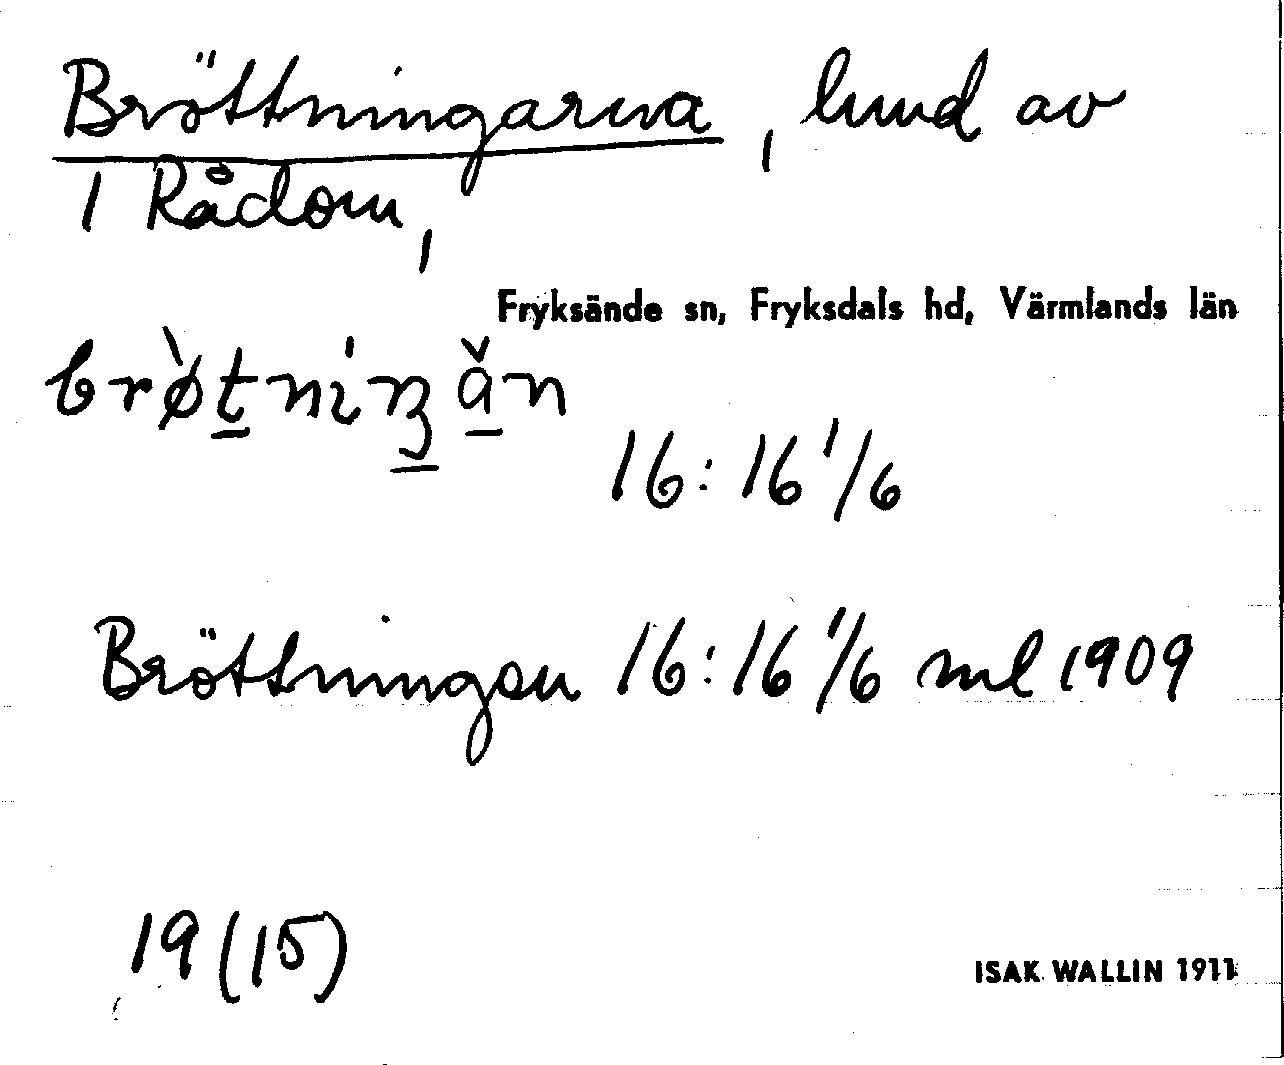 Bröttningarna, lund av
1 Rådom,
Fryksände sn, Fryksdals hd, Värmlands län
brø̀tnìŋǎn
16:16 1/6
Bröttningen 16:16 1/6 ml 1909
19 (15)
ISAK WALLIN 1911